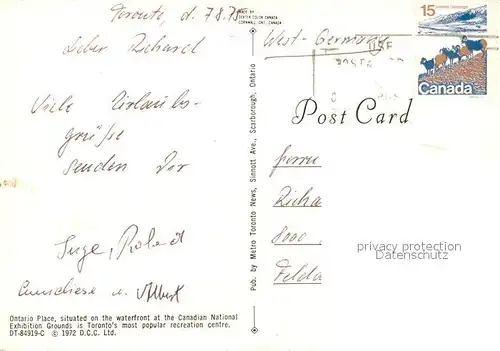 Toronto, d. 7.8.75
Lieber Richard
Viele Urlaubs-
grüße
senden Dir
Inge, Roland
Anneliese u. Albert
Ontario Place, situated on the waterfront at the Canadian National
Exhibition Grounds is Toronto's most popular recreation centre.
DT-84919-C © 1972 D.C.C. Ltd.
MADE BY
DEXTER COLOR CANADA
CORNWALL, ONT. CANADA
Pub. by Metro Toronto News, Sinnott Ave., Scarborough, Ontario
West-Germany
15
Canada
Post Card
Herrn
Richa
8000
Felda
privacy protection
Datenschutz